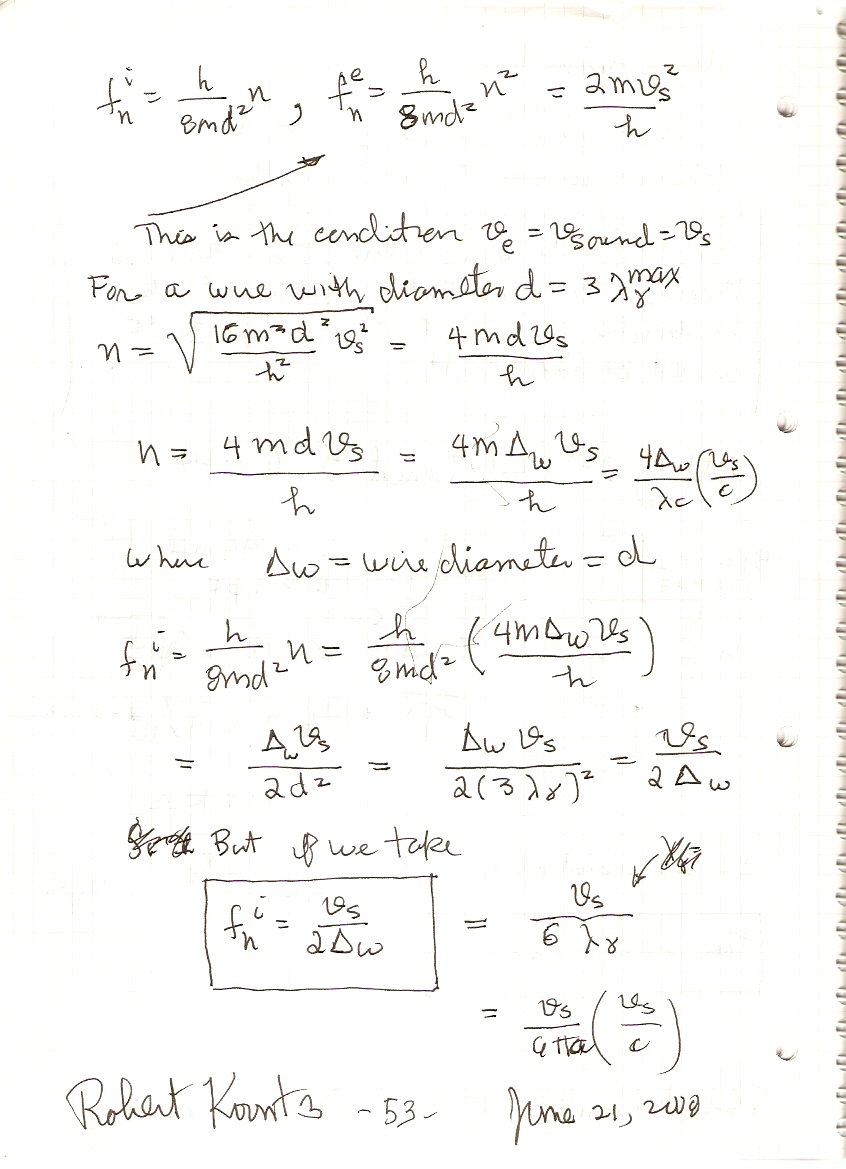 fₙⁱ = h/8md² n , fₙᵉ = h/8md² n² = 2mvₛ²/h
This is the condition vₑ = vsound = vₛ
For a wire with diameter d = 3 λᵧᵐᵃˣ
n = √(16m²d²/h² vₛ²) = 4mdvₛ/h
n = 4mdvₛ/h = 4mΔwvₛ/h = 4Δw/λc (vₛ/c)
where Δw = wire diameter = d
fₙⁱ = h/8md² n = h/8md² (4mΔwvₛ/h)
= Δwvₛ/2d² = Δwvₛ/2(3λᵧ)² = vₛ/2Δw
But if we take
fₙⁱ = vₛ/2Δw = vₛ/6λᵧ
= vₛ/(vₛ/c)
Robert Koontz - 53 - June 21, 2008